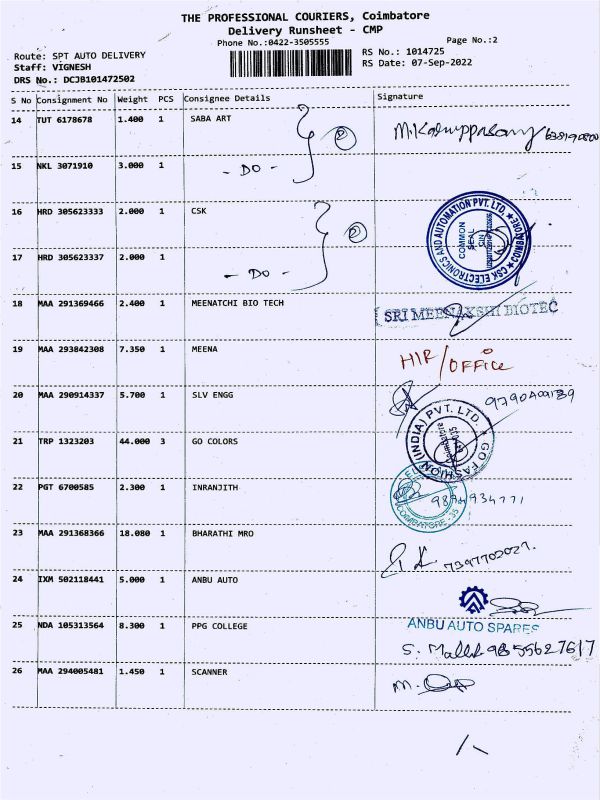 THE PROFESSIONAL COURIERS, Coimbatore
Delivery Runsheet - CMP
Phone No.:0422-3505555
Page No.:2
Route: SPT AUTO DELIVERY
RS No.: 1014725
Staff: VIGNESH
RS Date: 07-Sep-2022
DRS No.: DCJB101472502
S No Consignment No Weight PCS Consignee Details Signature
14 TUT 6178678 1.400 1 SABA ART
2
15 NKL 3071910 3.000 1 - DO -
16 HRD 305623333 2.000 1 CSK
2
CSK ELECTRONICS AND AUTOMATION PVT. LTD. COIMBATORE
COMMON SEAL CIN
17 HRD 305623337 2.000 1 - DO -
18 MAA 291369466 2.400 1 MEENATCHI BIO TECH SRI MEENAKSHI BIOTEC
19 MAA 293842308 7.350 1 MEENA HIR/OFFICE
20 MAA 290914337 5.700 1 SLV ENGG
21 TRP 1323203 44.000 3 GO COLORS GO FASHION (INDIA) PVT. LTD.
22 PGT 6700585 2.300 1 INRANJITH
COIMBATORE-35
23 MAA 291368366 18.080 1 BHARATHI MRO 7397702027.
24 IXM 502118441 5.000 1 ANBU AUTO
ANBU AUTO SPARES
25 NDA 105313564 8.300 1 PPG COLLEGE 9855627617
26 MAA 294005481 1.450 1 SCANNER